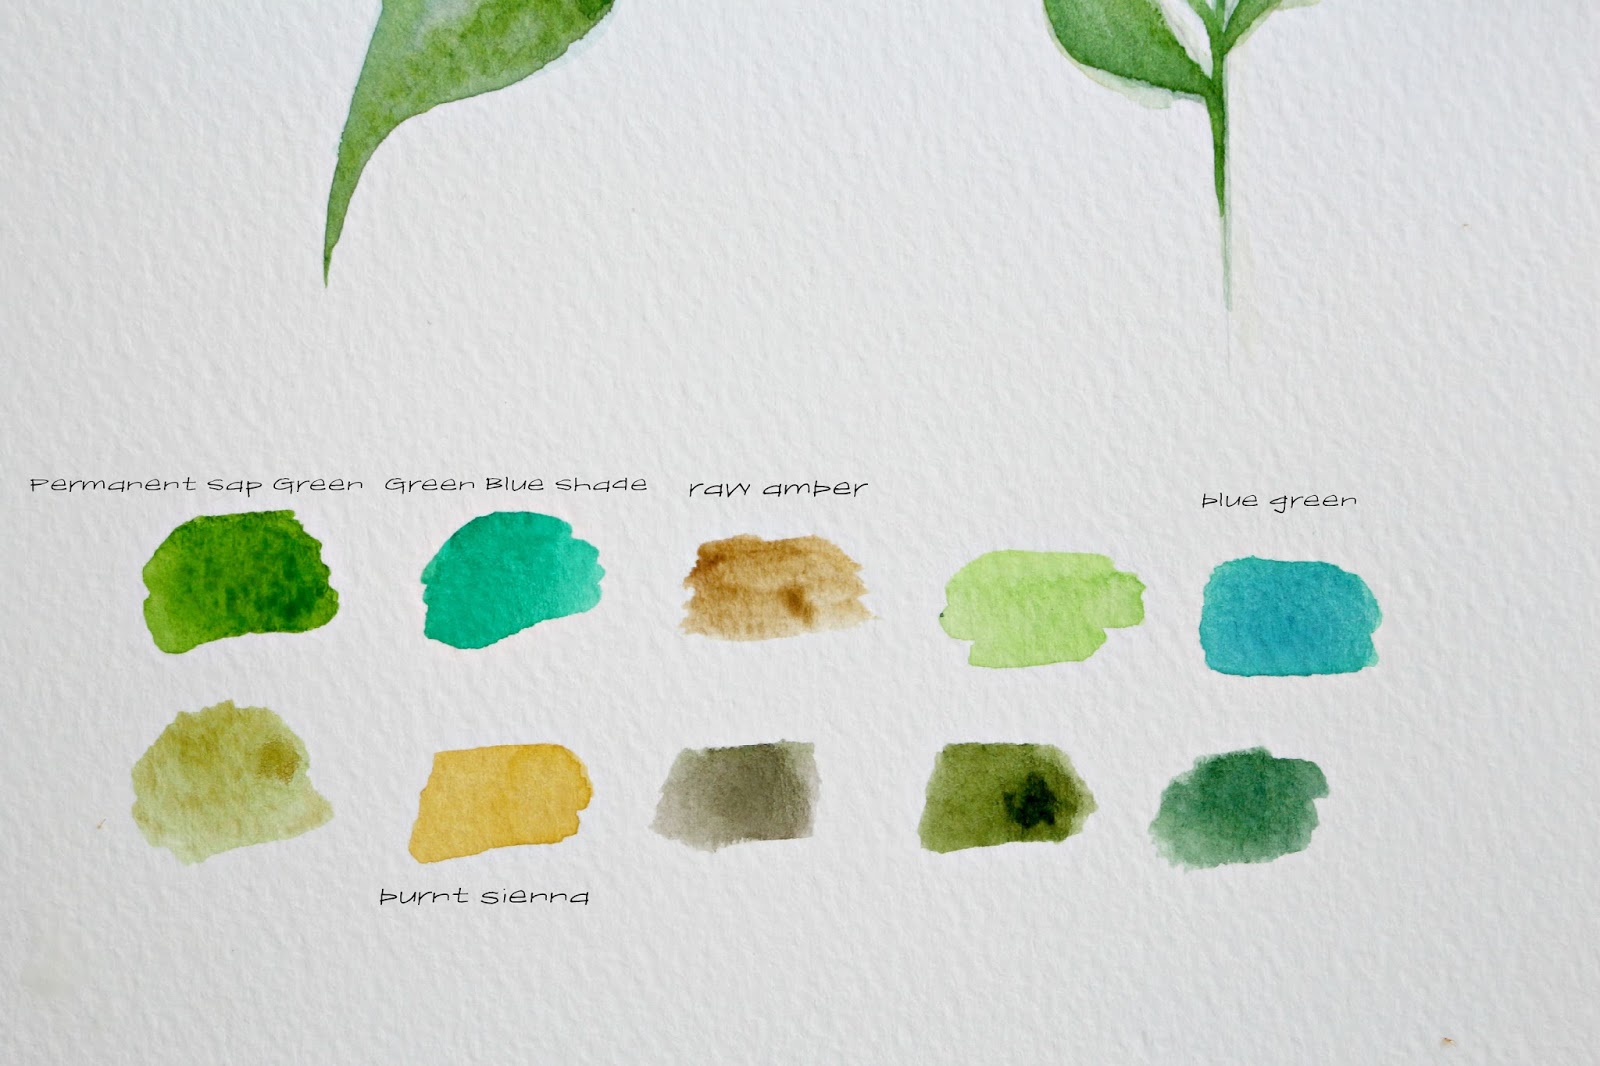 Permanent Sap Green
Green Blue Shade
raw amber
blue green
burnt sienna